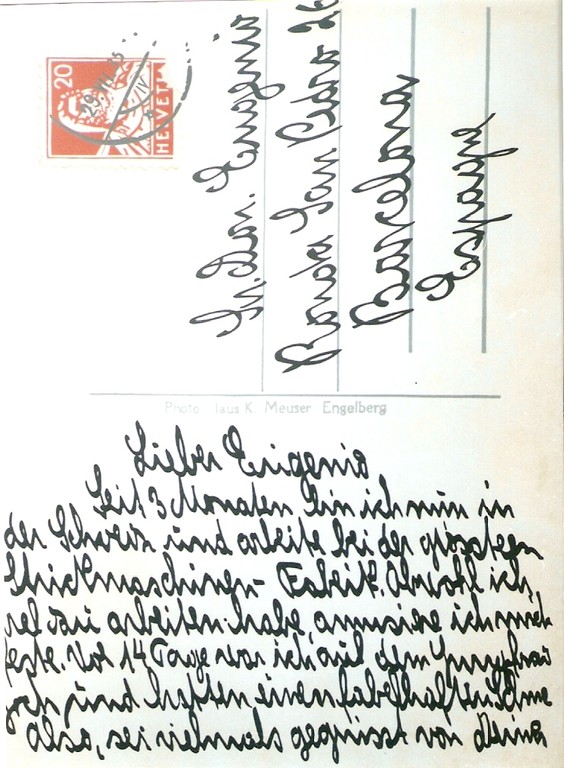 20
HELVETIA
29.VII.35
Sr. Don. Eugenio
Ronda San Pedro 26
Barcelona
Espagne
Photo K. Meuser Engelberg
Lieber Eugenio
Seit 3 Monaten bin ich nun in
der Schweiz und arbeite bei der grössten
Strickmaschinen- Fabrik. Obwohl ich
viel zu arbeiten habe, amusiere ich mich
feste. Vor 14 Tage war ich auf dem Jungfrau
joch und hatten einen fabelhaften
Also, sei vielmals gegrüsst von